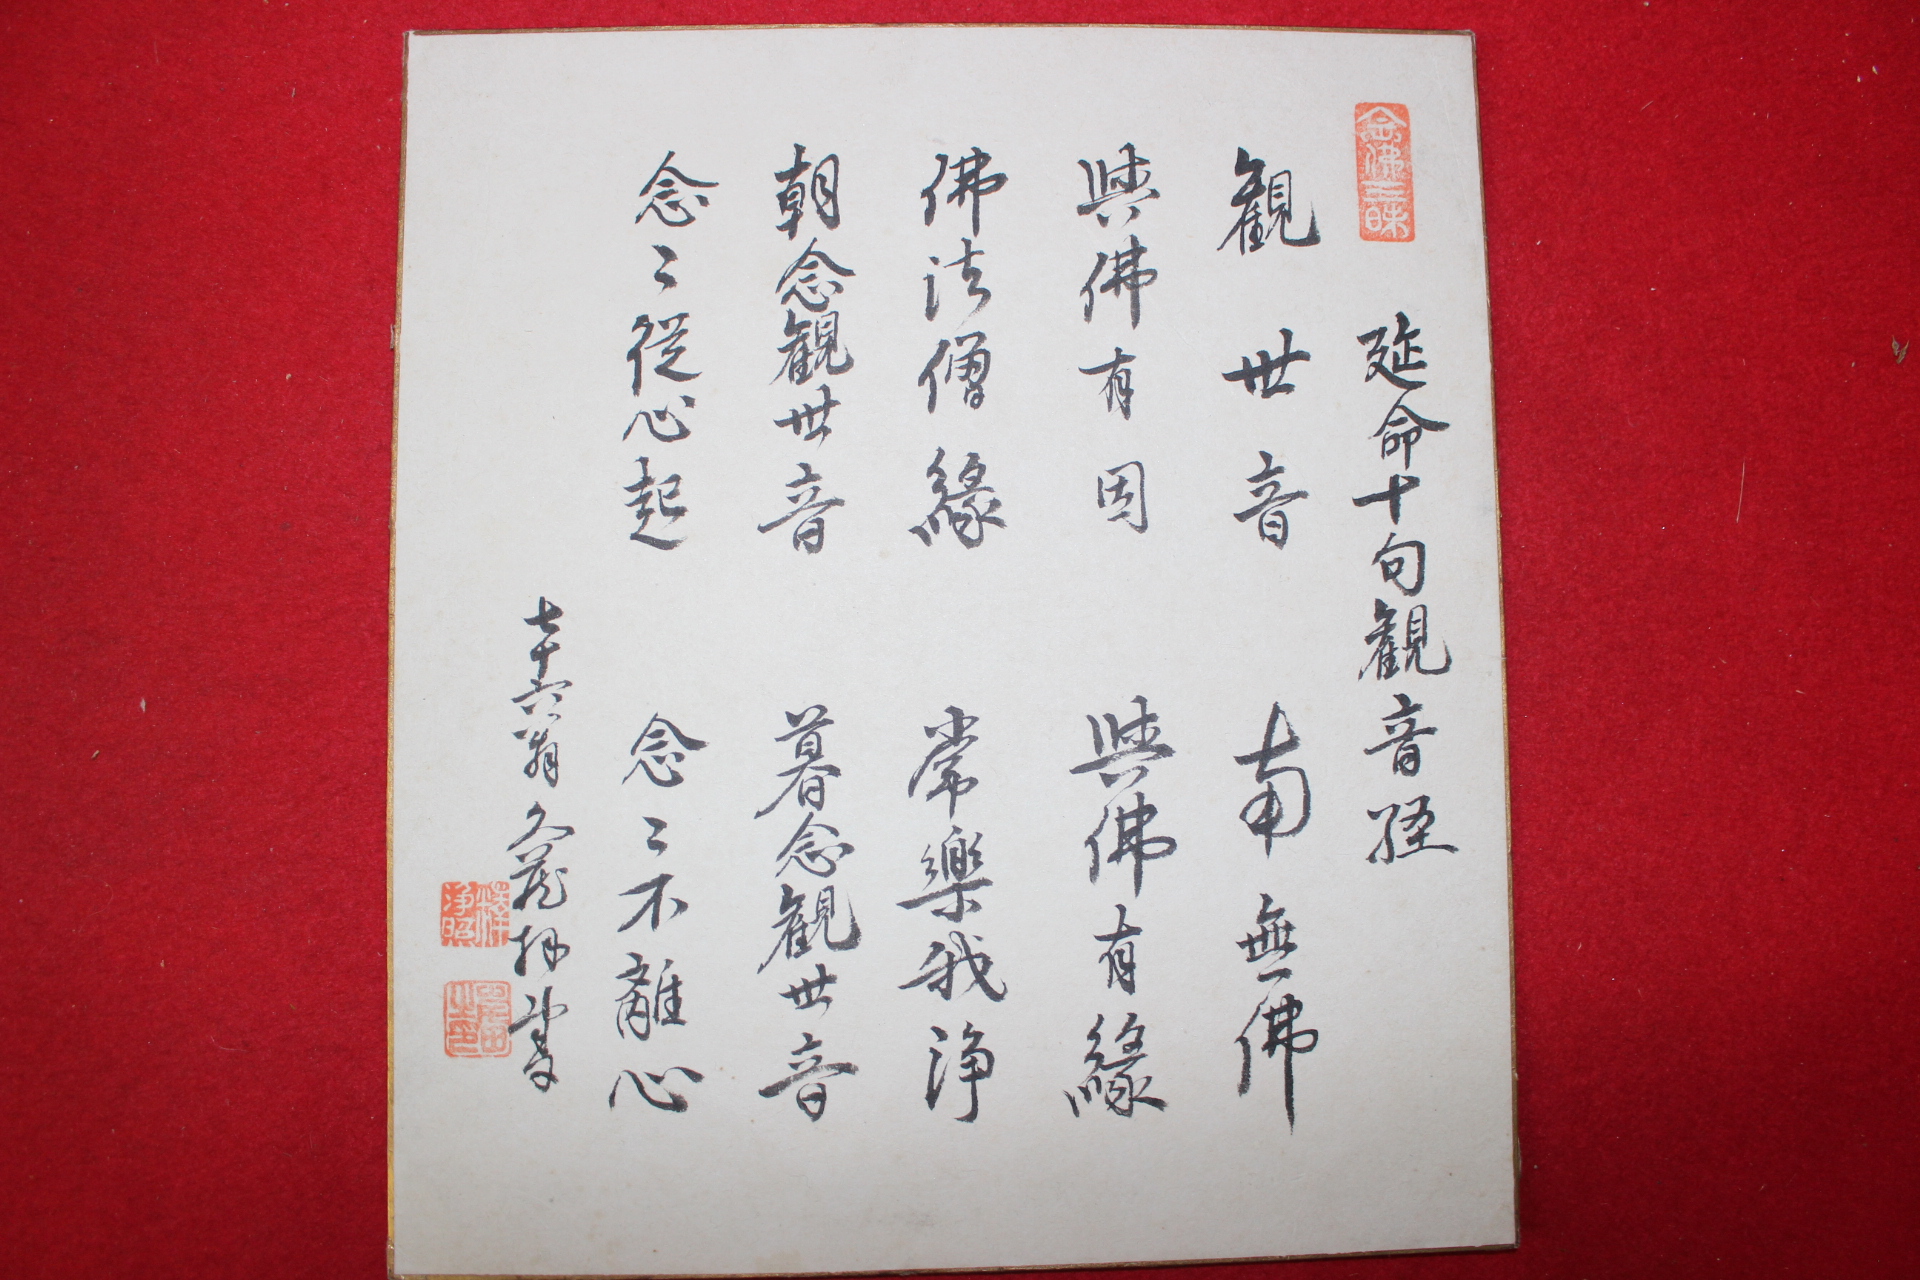 念佛三昧
延命十句觀音経
觀世音 南無佛
與佛有因 與佛有緣
佛法僧緣 常樂我浄
朝念觀世音 暮念觀世音
念〻從心起 念〻不離心
七十六翁
拜書